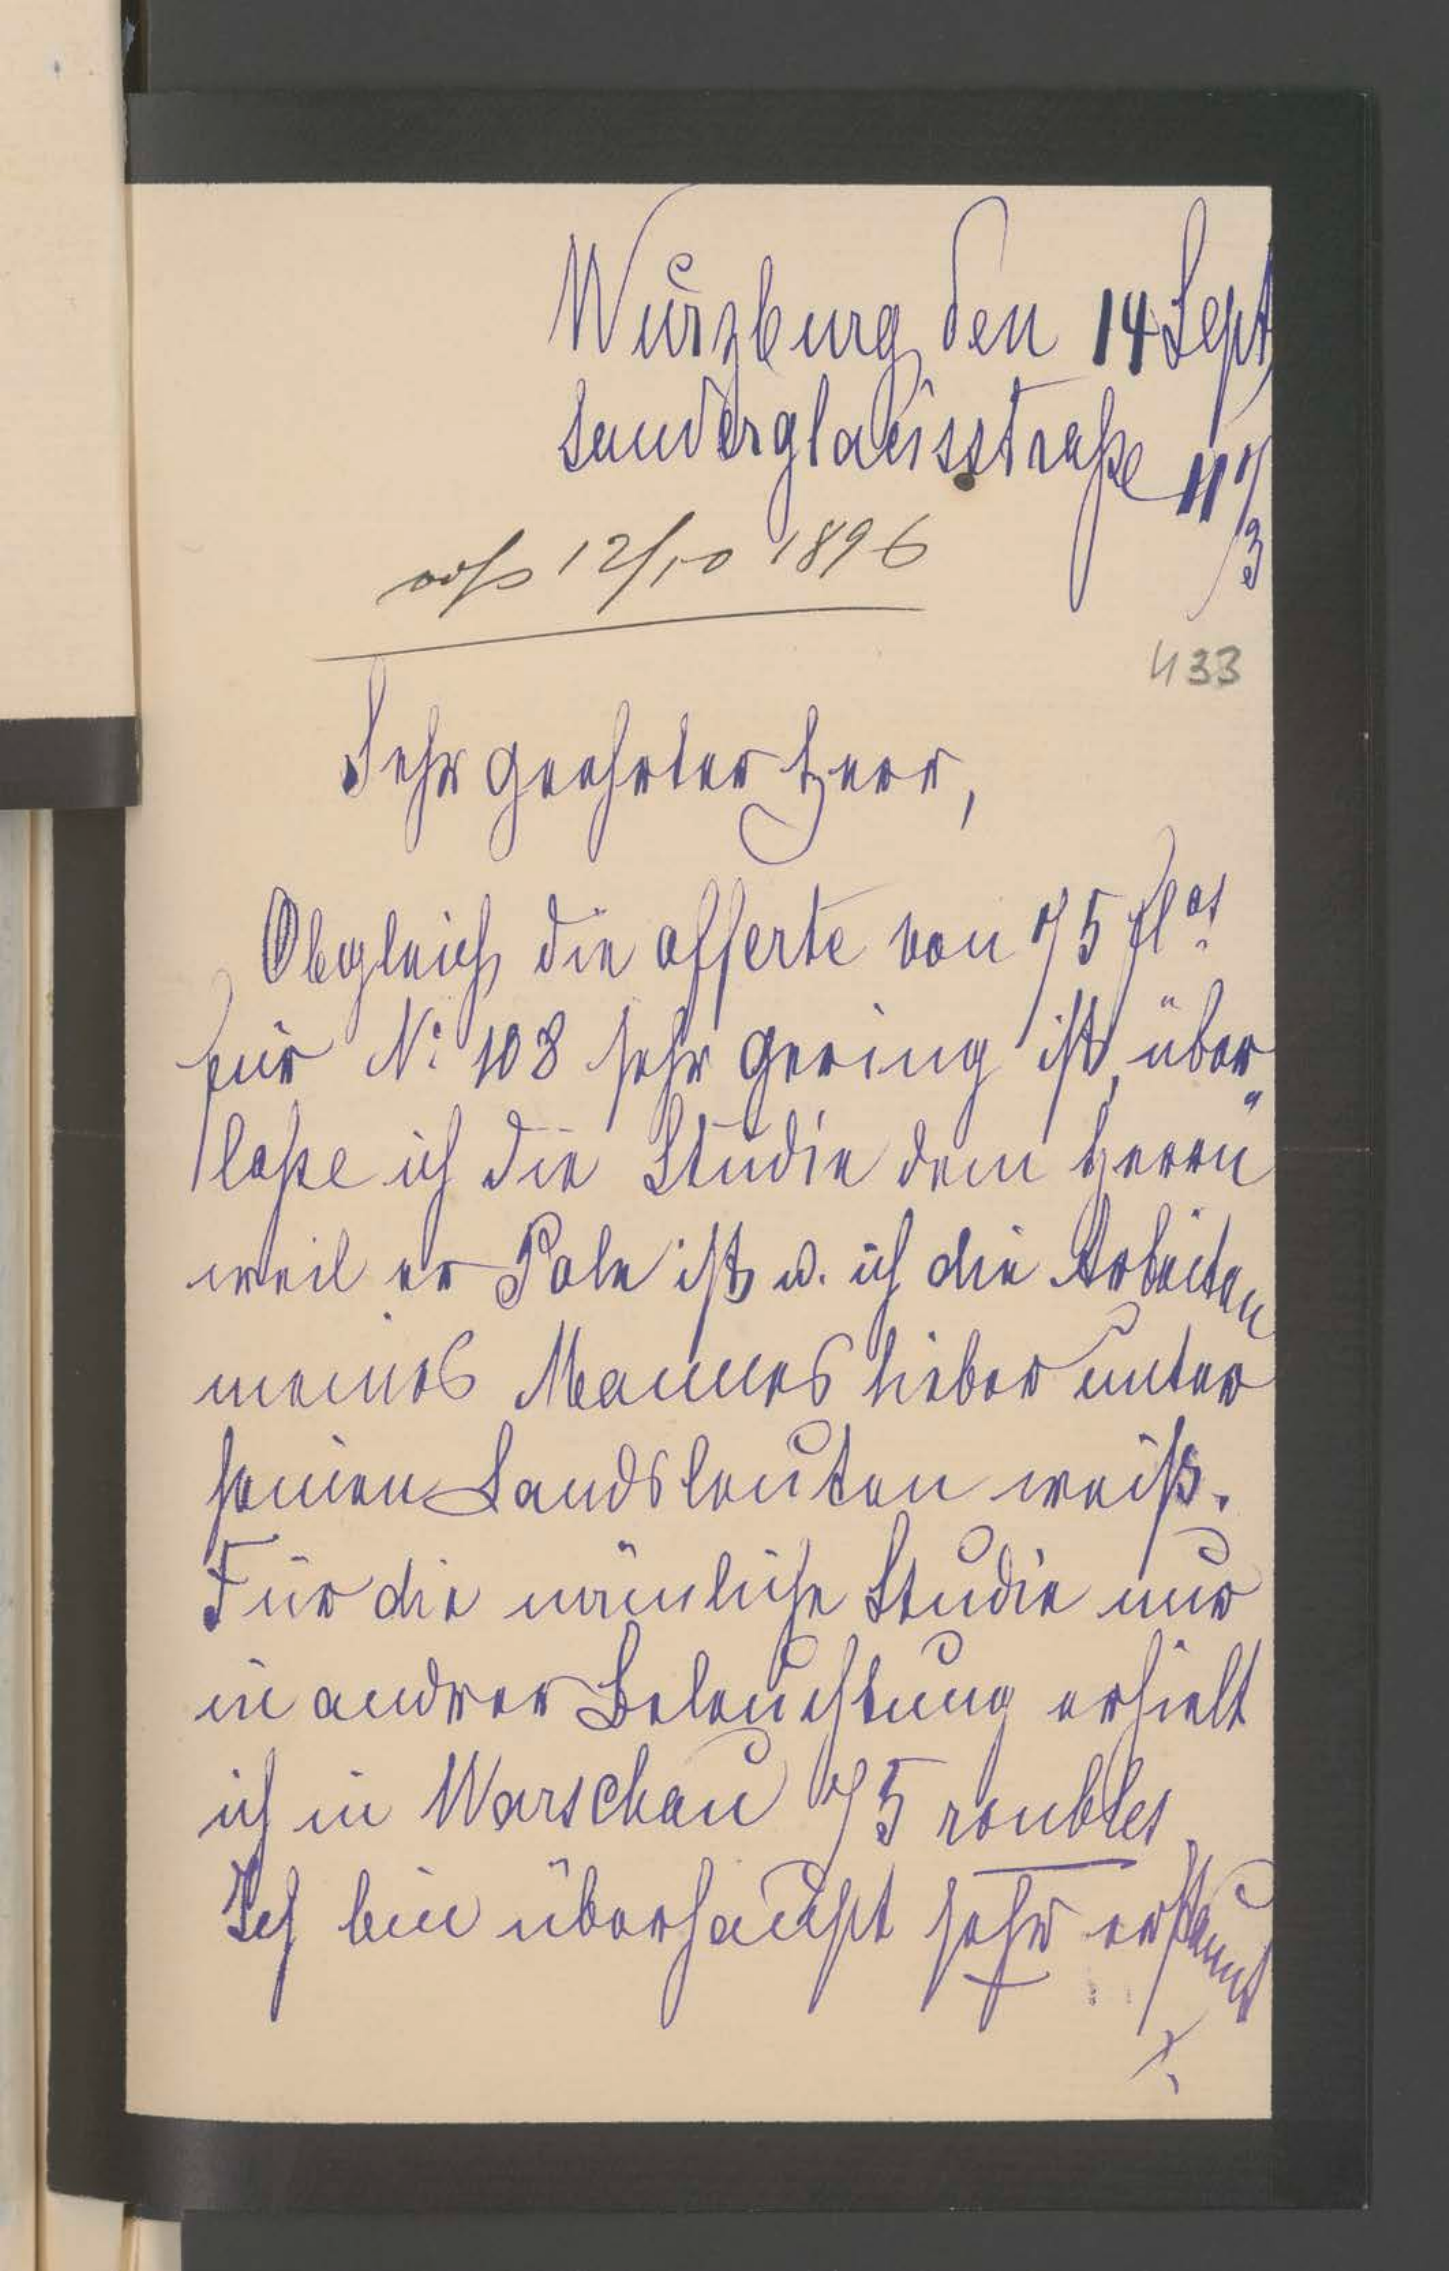 Würzburg den 14 Sept
Sanderglacisstraße 11 1/3
12/10 1896
433
Sehr geehrter Herr,
Obgleich die offerte von 75 fl
für N: 108 sehr gering ist, über„
laße ich die Studie dem Herrn
weil er Pole ist u. ich die Arbeiten
meines Mannes lieber unter
seinen Landsleuten weiß.
Für die nämliche Studie nur
in andrer Beleuchtung erhielt
ich in Warschau 75 roubles
Ich bin überhaupt sehr erstaunt